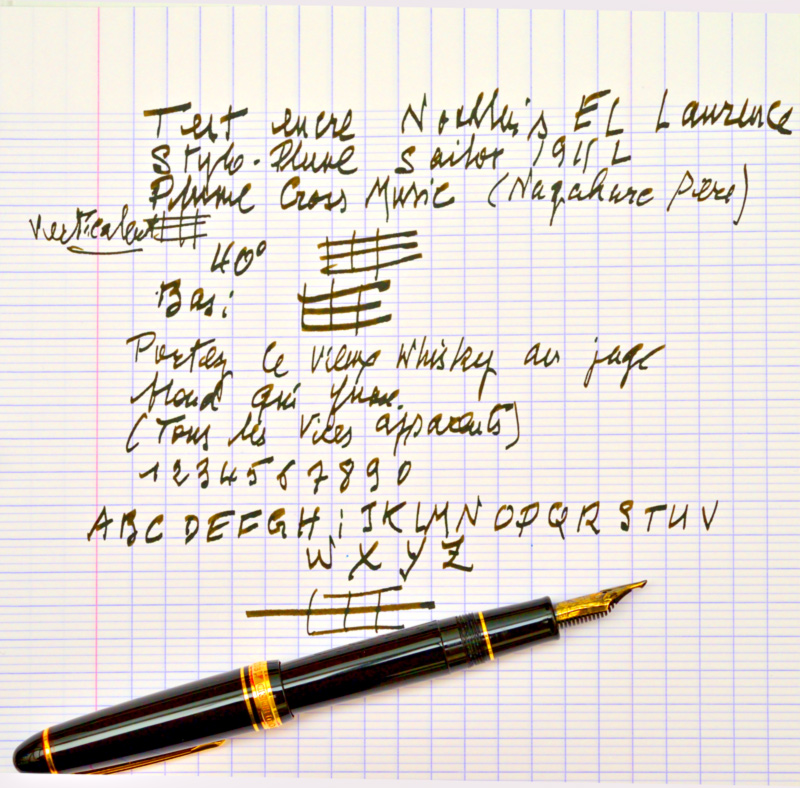 Test encre Noodler's EL Laurence
Stylo-Plume Sailor 1911 L
Plume Cross Music (Nagahara Père)
Vertical
40°
Bas:
Portez le vieux whisky au juge
blond qui fume.
(Tous les vices apparents)
1 2 3 4 5 6 7 8 9 0
A B C D E F G H i J K L M N O P Q R S T U V
W X Y Z